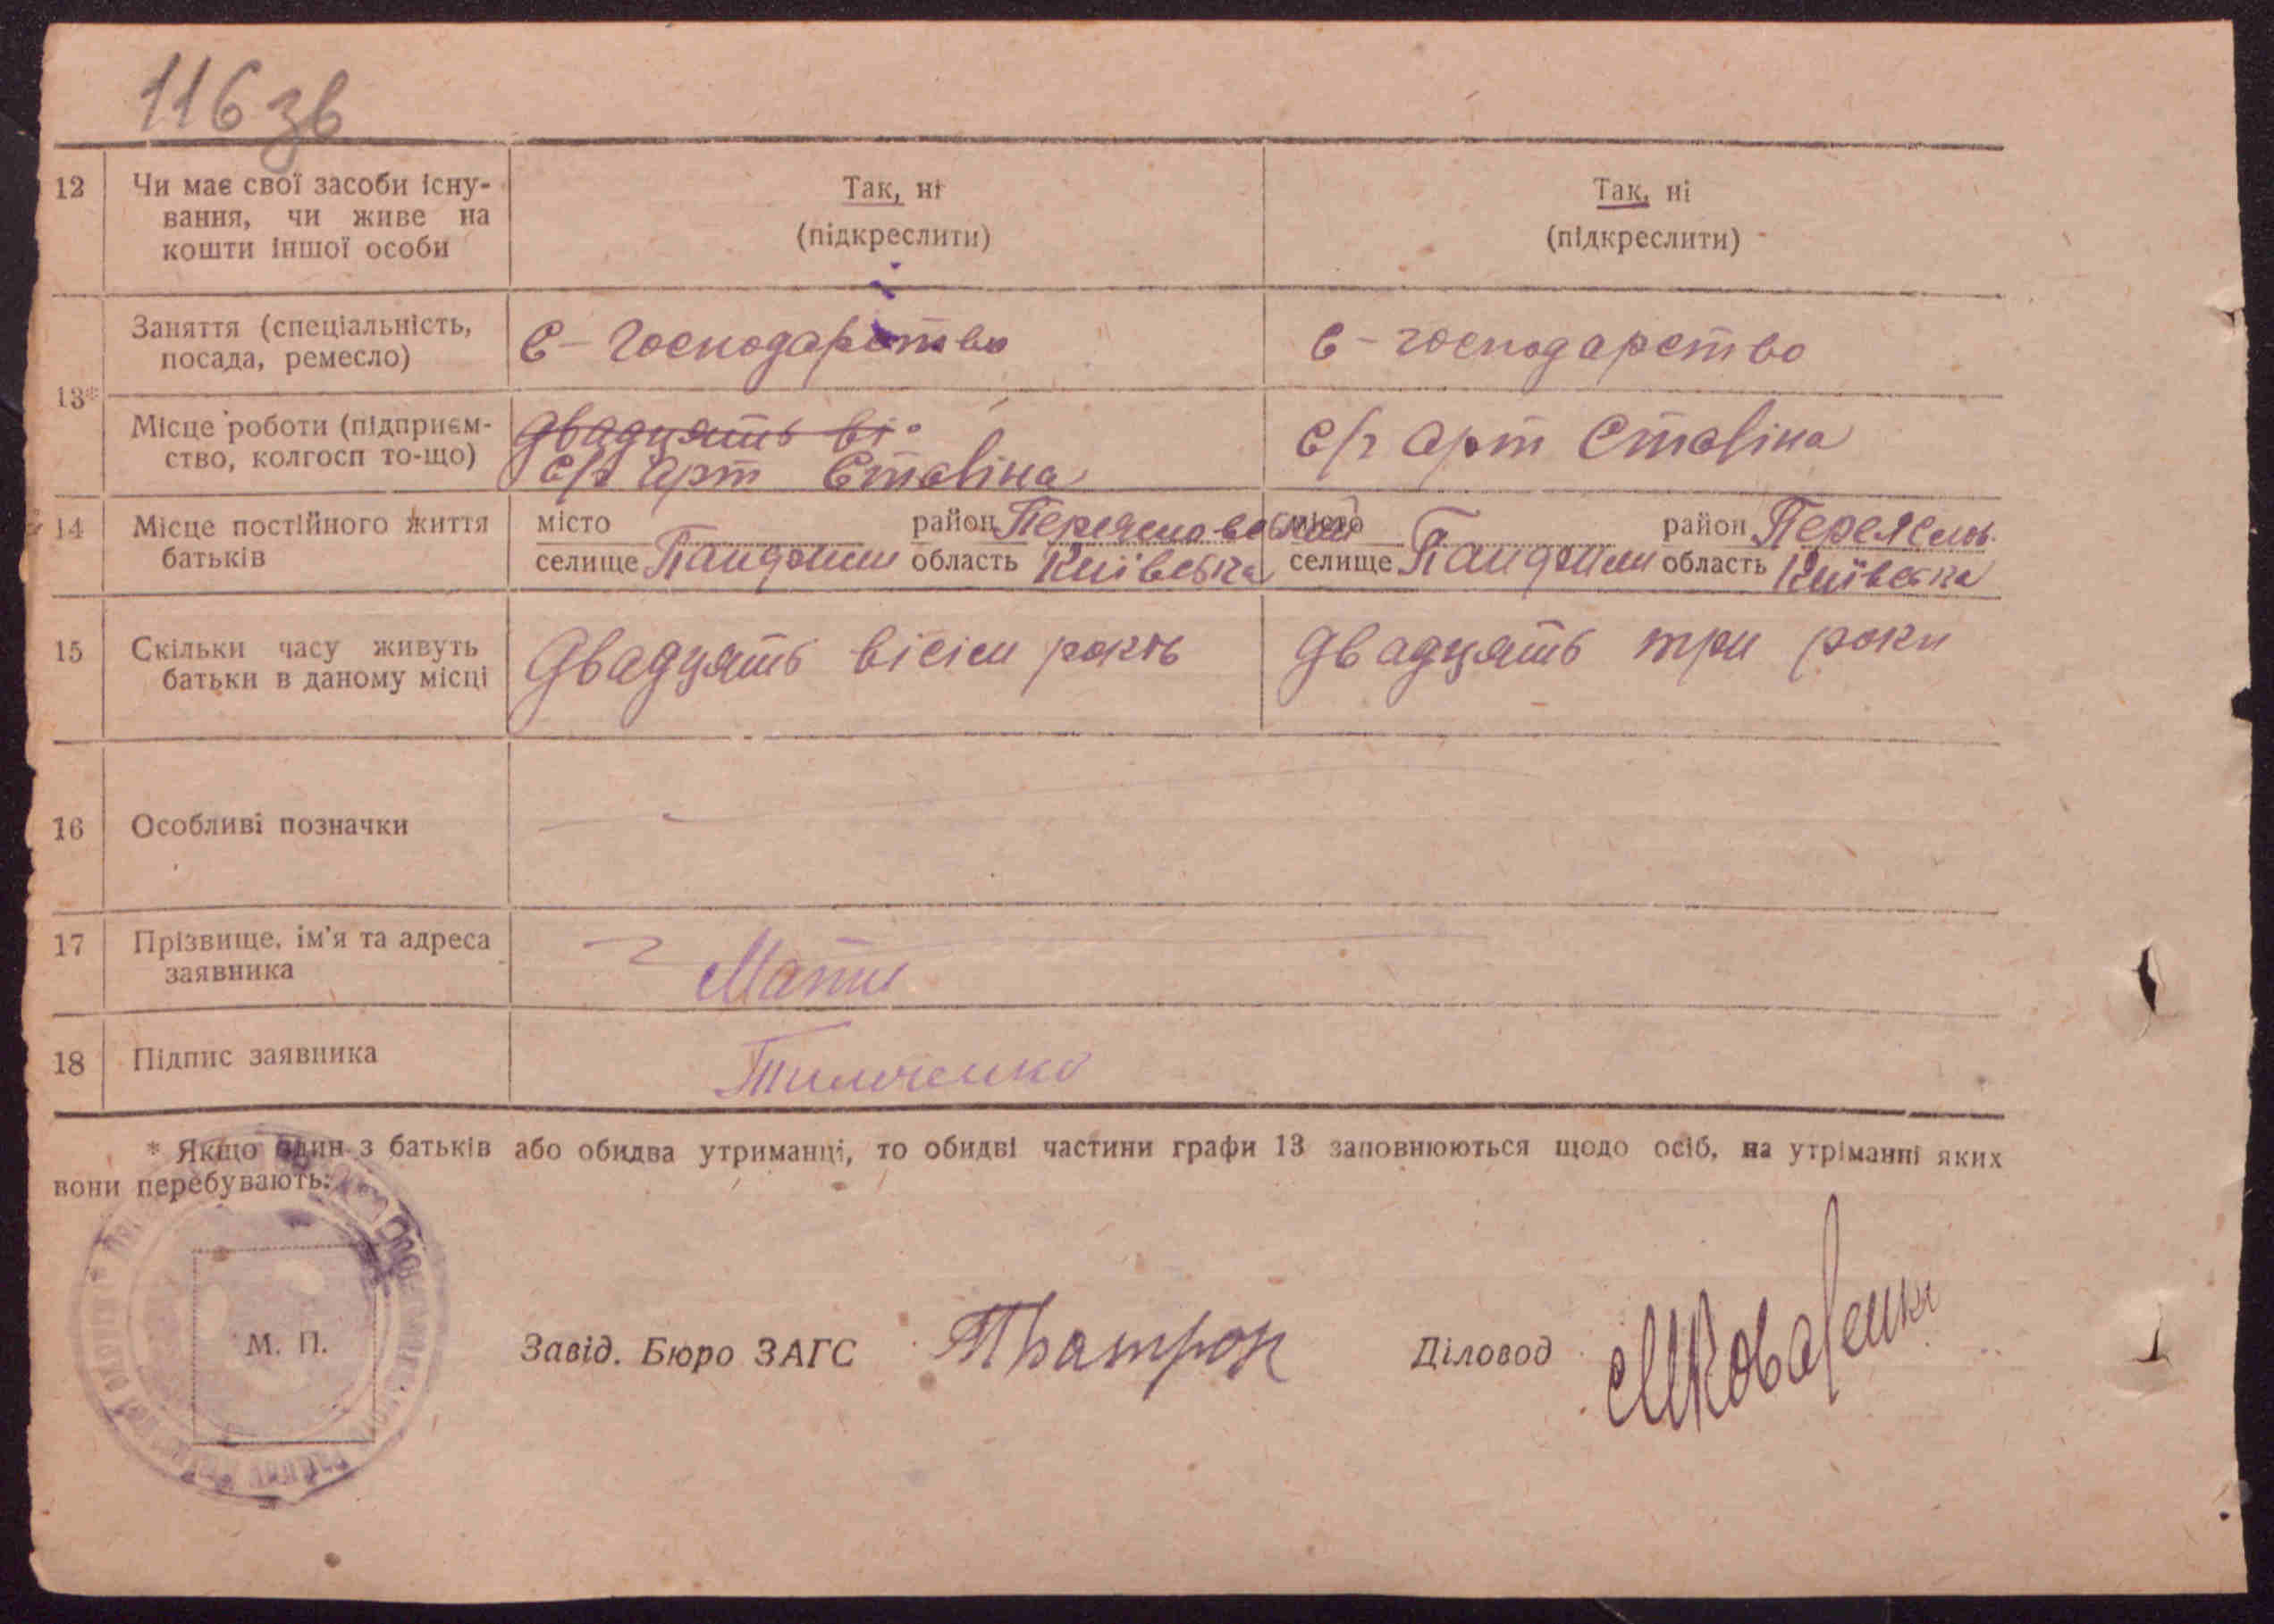 116 зв
12 Чи має свої засоби існу- Так, ні Так, ні
вання, чи живе на (підкреслити) (підкреслити)
кошти іншої особи
13*
Заняття (спеціальність, С-господарство с-господарство
посада, ремесло)
Місце роботи (підприєм- двадцять ві
ство, колгосп то-що) с/г арт Сталіна с/г арт Сталіна
14 Місце постійного життя місто район місто район Переяслов.
батьків селище Пандоши область Київська селище Пандоши область Київська
15 Скільки часу живуть Двадцять вісім років двадцять три роки
батьки в даному місці
16 Особливі позначки
17 Прізвище, ім'я та адреса
заявника Мати
18 Підпис заявника
* Якщо один з батьків або обидва утриманці, то обидві частини графи 13 заповнюються щодо осіб, на утріманні яких
вони перебувають.
М. П. Завід. Бюро ЗАГС Діловод МКоваленко